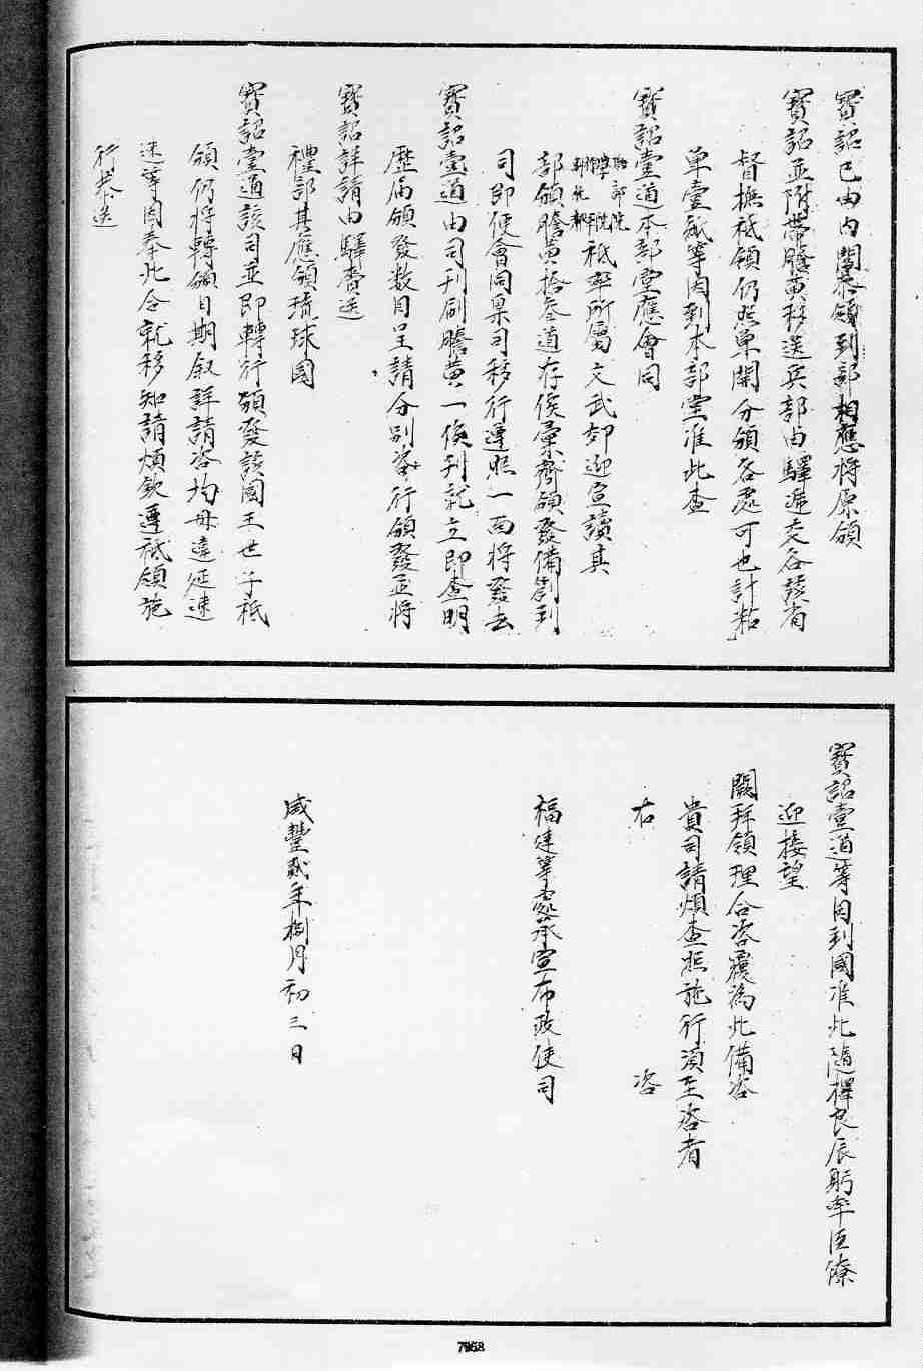 寶詔已由內閣恭領到部相應將原頒
寶詔並附帶謄黃移送兵部由驛遞交各該省
督撫祗領仍照東開分頒各處可也計粘
单壹紙等因到本部堂准此查
寶詔壹道本部堂應會同
部院
祗率所屬文武郊迎宣讀其
部頒謄黃拾叁道存俟彙齊頒發備劄到
司即便會同臬司移行遵照一面將發去
寶詔壹道由司刊刷謄黃一俟刊就立即查明
歷届頒發数目呈請分别咨行頒發並將
寶詔詳請由驛賫送
禮部其應頒琉球國
寶詔壹道該司並即轉行頒發該國王世子祗
領仍將轉頒日期叙詳請咨均毋違延速
速等因奉此合就移知請煩欽遵祗領施
行恭送
寶詔壹道等因到國准此隨擇良辰躬率臣僚
迎接望
闕拜領理合咨覆為此備咨
貴司請煩查照施行須至咨者
右 咨
福建等處承宣布政使司
咸豐貳年捌月初三日
7968